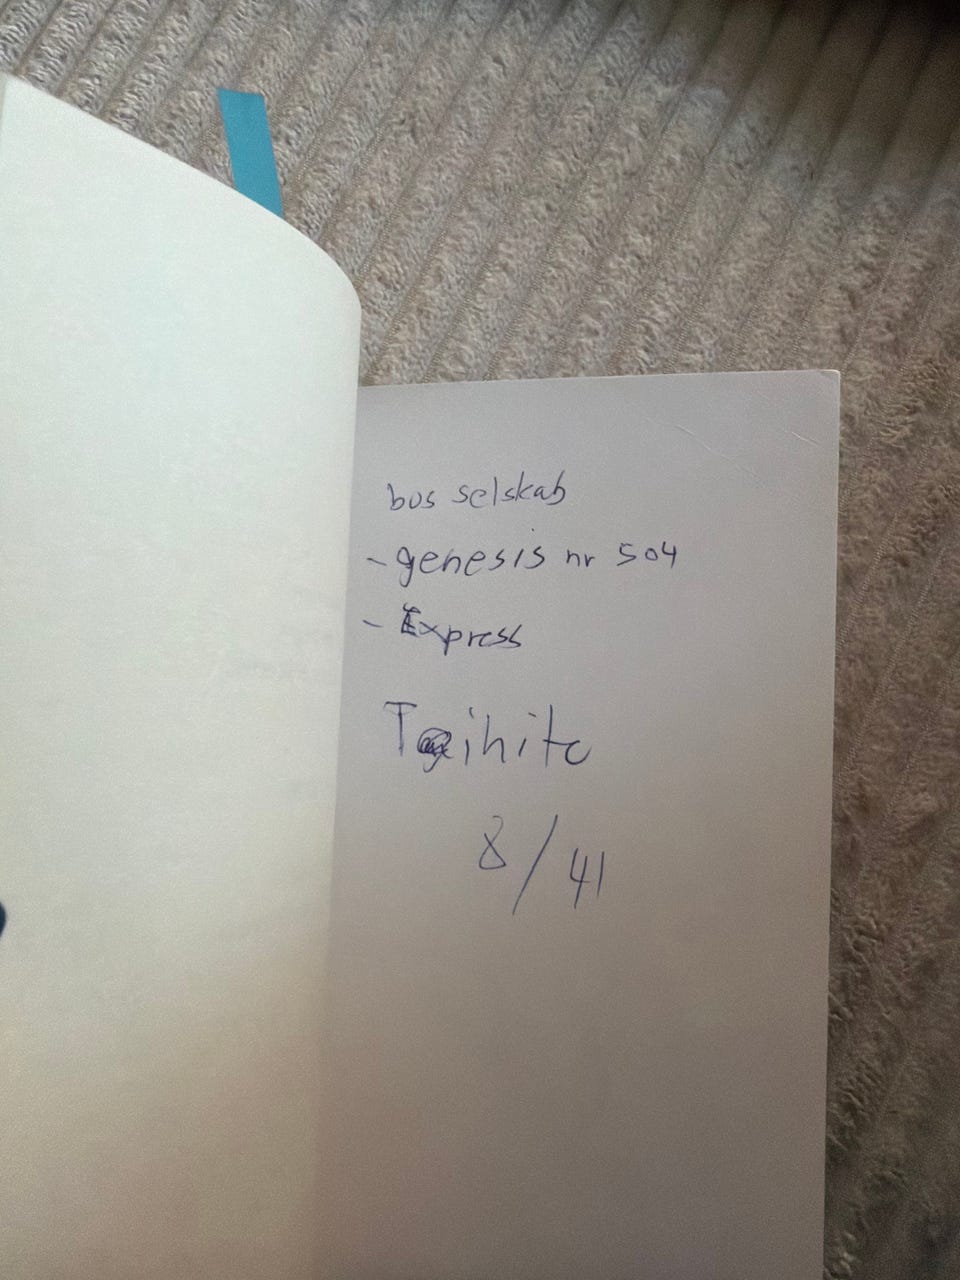 bus selskab
- genesis nr 504
- Express
8/41